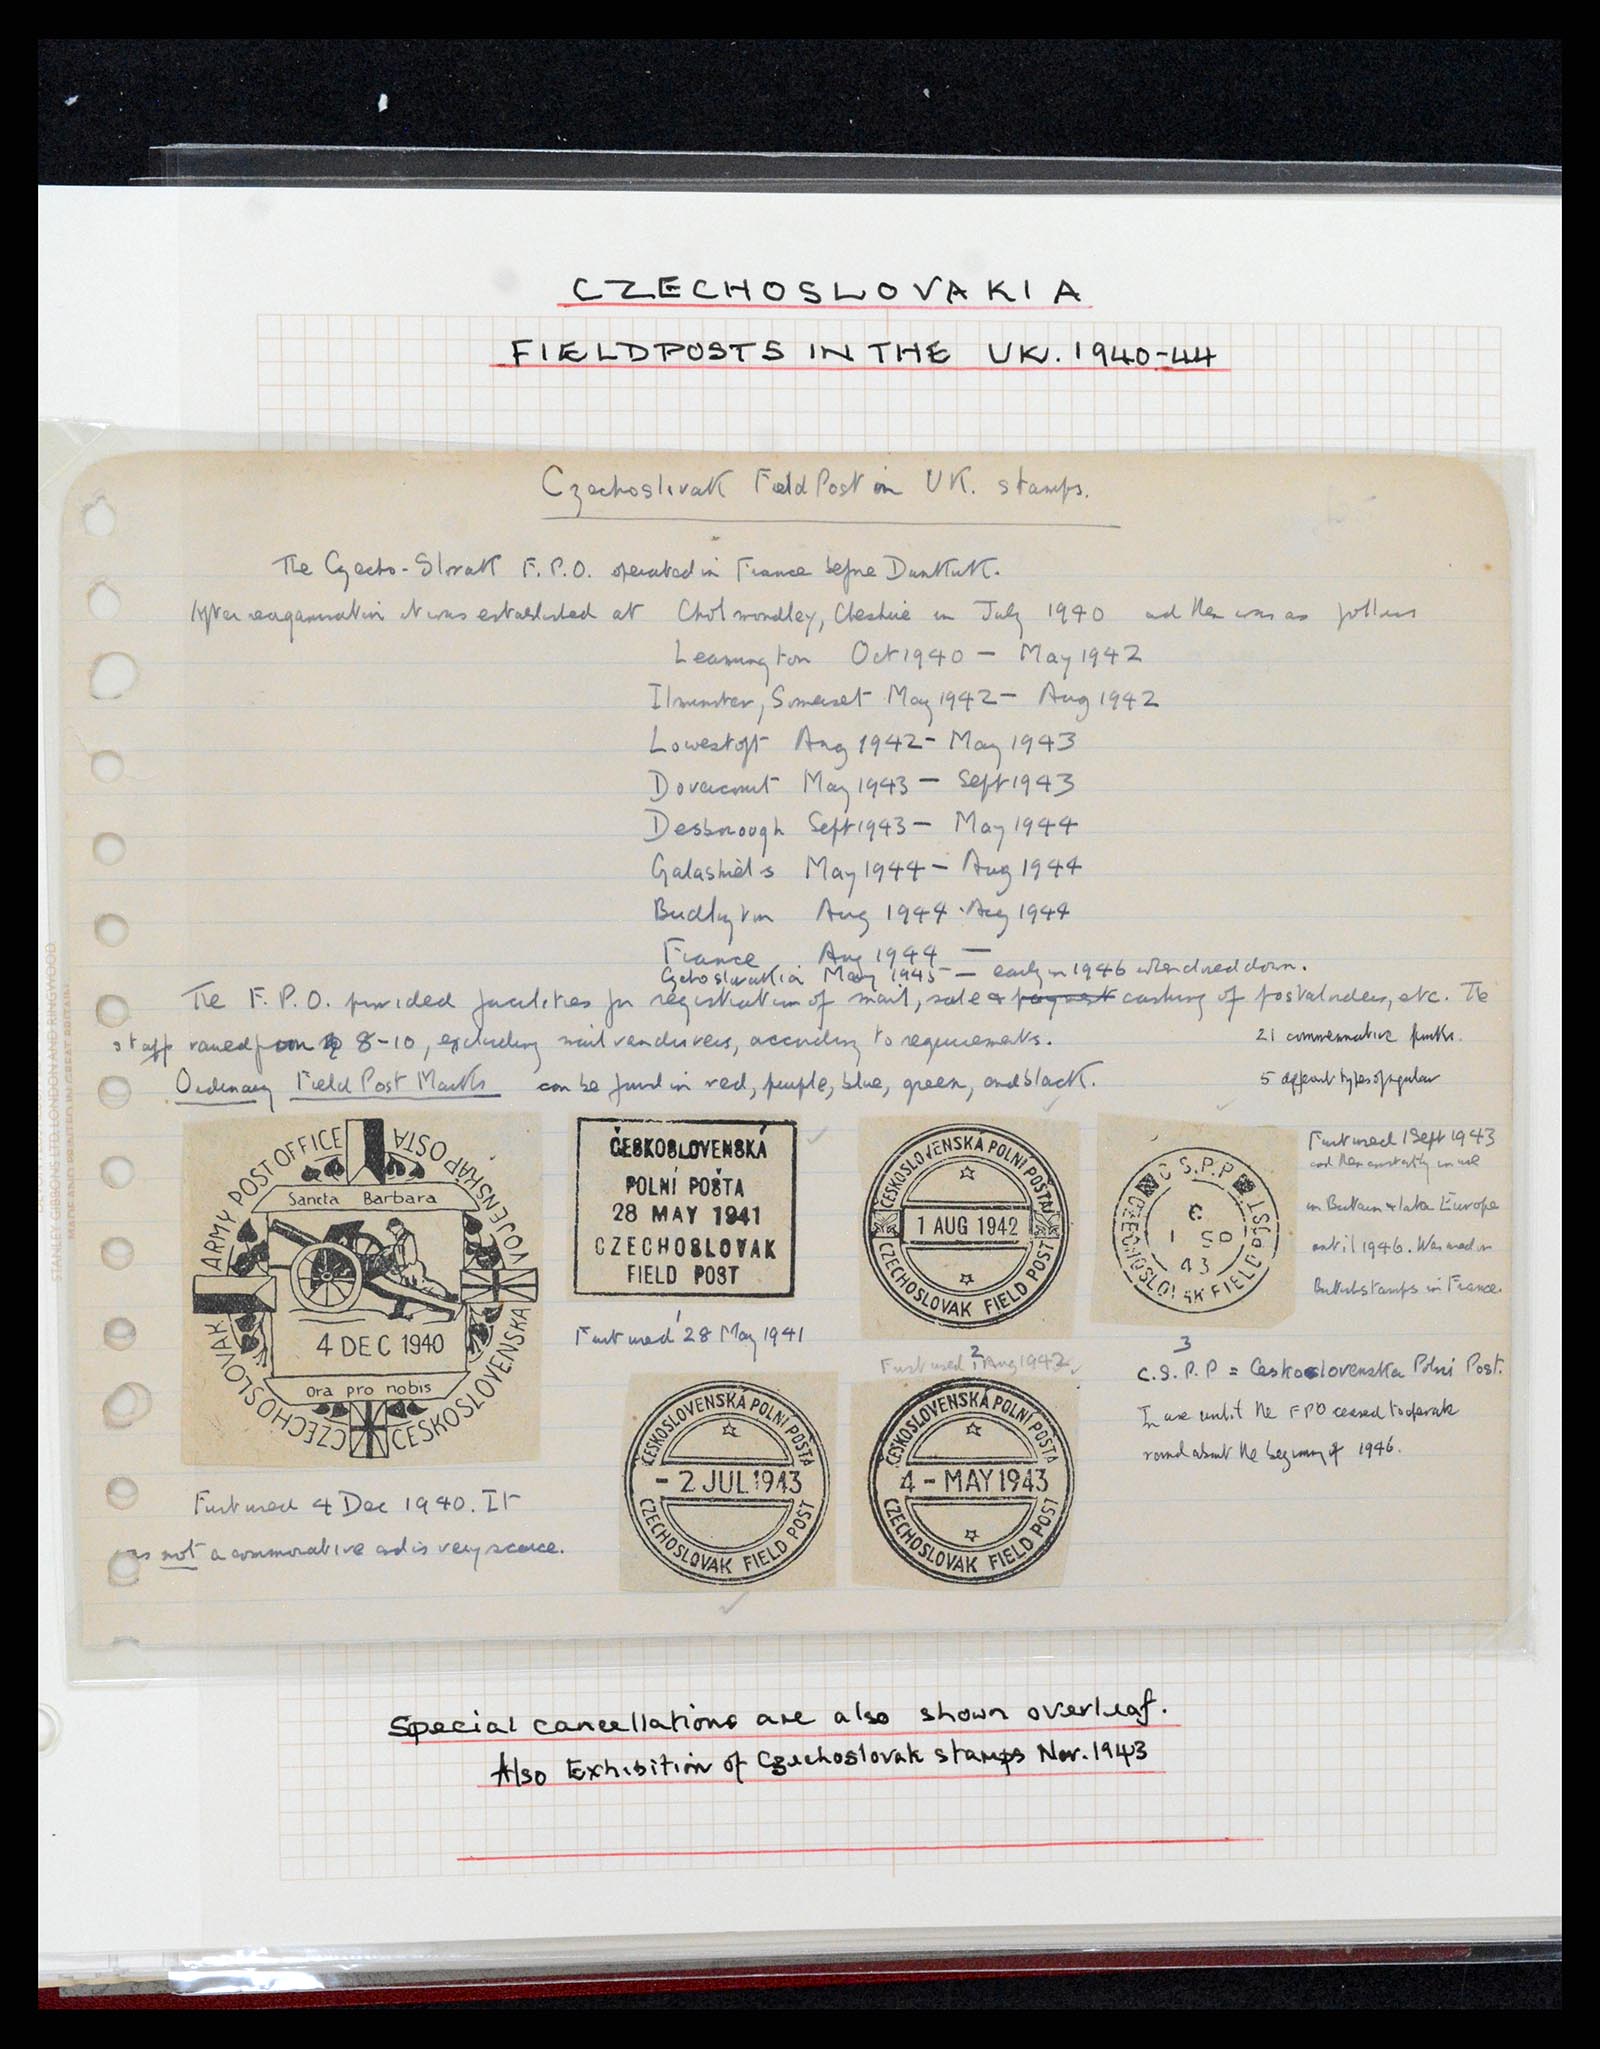 CZECHOSLOVAKIA
FIELDPOSTS IN THE UK. 1940-44
Czechoslovak Field Post in UK. stamps.
The Czecho-Slovak F.P.O. operated in France before Dunkirk.
After reorganisation it was established at Cholmondley, Cheshire in July 1940 and then was as follows
Leamington Oct 1940 - May 1942
Ilminster, Somerset May 1942 - Aug 1942
Lowestoft Aug 1942 - May 1943
Dovercourt May 1943 - Sept 1943
Desborough Sept 1943 - May 1944
Galashiels May 1944 - Aug 1944
Aug 1944 - Aug 1944
France Aug 1944 -
May 1945 - early in 1946 when closed down.
The F.P.O. provided facilities for registration of mail, sale & cashing of postal orders, etc. The
staff varied from 8-10, excluding mail van drivers, according to requirements.
21 commemorative
Ordinary Field Post Marks can be found in red, purple, blue, green, and black.
5 different types of regular
ARMY POST OFFICE
VOJENSKÁ POSTA
Sancta Barbara
4 DEC 1940
Ora pro nobis
CZECHOSLOVAK
ČESKOSLOVENSKÁ
First used 4 Dec 1940. It
was not a commorative and is very scarce.
ČESKOSLOVENSKÁ
POLNÍ POŠTA
28 MAY 1941
CZECHOSLOVAK
FIELD POST
First used 28 May 1941
ČESKOSLOVENSKÁ POLNÍ POŠTA
1 AUG 1942
CZECHOSLOVAK FIELD POST
First used Aug 1942
C.S.P.P.
6
1 SP
43
CZECHOSLOVAK FIELD POST
First used 1 Sept 1943
and then constantly in use
in Britain & later Europe
until 1946. Was used on
British stamps in France.
3
C.S.P.P = Ceskoslovenska Polni Post.
In use until the FPO ceased to operate
round about the beginning of 1946.
ČESKOSLOVENSKÁ POLNÍ POŠTA
- 2 JUL 1943
CZECHOSLOVAK FIELD POST
ČESKOSLOVENSKÁ POLNÍ POŠTA
4 - MAY 1943
CZECHOSLOVAK FIELD POST
STANLEY GIBBONS LTD. LONDON AND RINGWOOD
MADE AND PRINTED IN GREAT BRITAIN
Special cancellations are also shown overleaf.
Also Exhibition of Czechoslovak stamps Nov. 1943